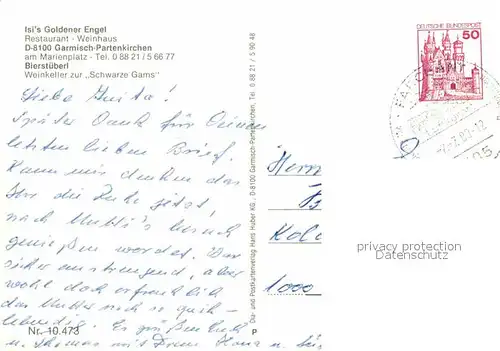 Isi's Goldener Engel
Restaurant - Weinhaus
D-8100 Garmisch-Partenkirchen
am Marienplatz - Tel. 0 88 21 / 5 66 77
Bierstüberl
Weinkeller zur „Schwarze Gams"
Liebe
Später Dank für Deinen
letzten lieben Brief.
Kann mir denken das
Ihr die Ruhe jetzt,
nach Mutti's Besuch
genießen werdet. War
sicher anstrengend, aber
wohl doch erfreulich
das Mutter noch so quick-
lebendig. Es grüßen Euch
u. Thomas mit Frau Hans u.
Nr. 10.473
P
Dia- und Postkartenverlag Hans Huber KG., D-8100 Garmisch-Partenkirchen, Tel. 0 88 21 / 5 90 48
DEUTSCHE BUNDESPOST
50
FARCHANT
Herrn
1000
privacy protection
Datenschutz